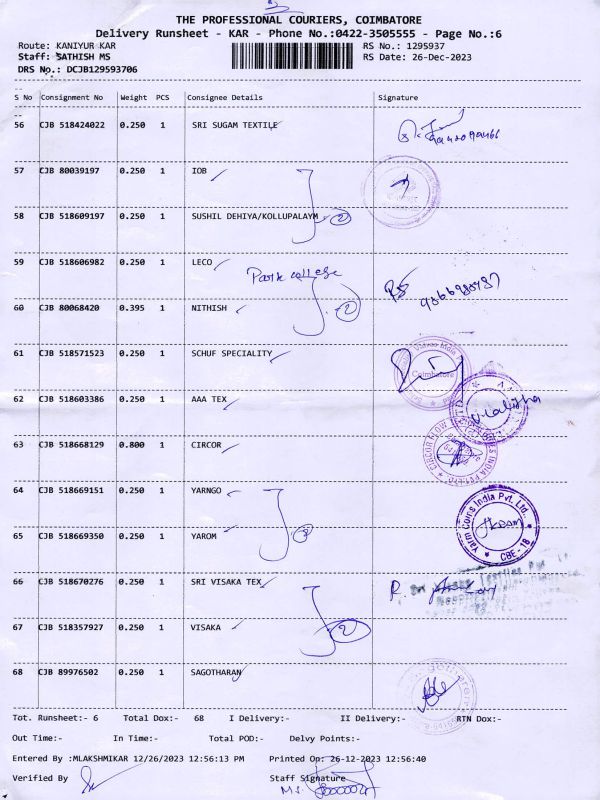 THE PROFESSIONAL COURIERS, COIMBATORE
Delivery Runsheet - KAR - Phone No.:0422-3505555 - Page No.:6
Route: KANIYUR KAR RS No.: 1295937
Staff: SATHISH MS RS Date: 26-Dec-2023
DRS No.: DCJB129593706
S No Consignment No Weight PCS Consignee Details Signature
56 CJB 518424022 0.250 1 SRI SUGAM TEXTILE
57 CJB 80039197 0.250 1 IOB
58 CJB 518609197 0.250 1 SUSHIL DEHIYA/KOLLUPALAYM 2
59 CJB 518606982 0.250 1 LECO
Park college
60 CJB 80068420 0.395 1 NITHISH 2
61 CJB 518571523 0.250 1 SCHUF SPECIALITY
Coimbatore
62 CJB 518603386 0.250 1 AAA TEX
63 CJB 518668129 0.800 1 CIRCOR
64 CJB 518669151 0.250 1 YARNGO
Yarm Coins India Pvt. Ltd.
CBE - 18
65 CJB 518669350 0.250 1 YAROM 2
66 CJB 518670276 0.250 1 SRI VISAKA TEX
67 CJB 518357927 0.250 1 VISAKA 2
68 CJB 89976502 0.250 1 SAGOTHARAN
Tot. Runsheet:- 6 Total Dox:- 68 I Delivery:- II Delivery:- RTN Dox:-
Out Time:- In Time:- Total POD:- Delvy Points:-
Entered By :MLAKSHMIKAR 12/26/2023 12:56:13 PM Printed On: 26-12-2023 12:56:40
Verified By Staff Signature